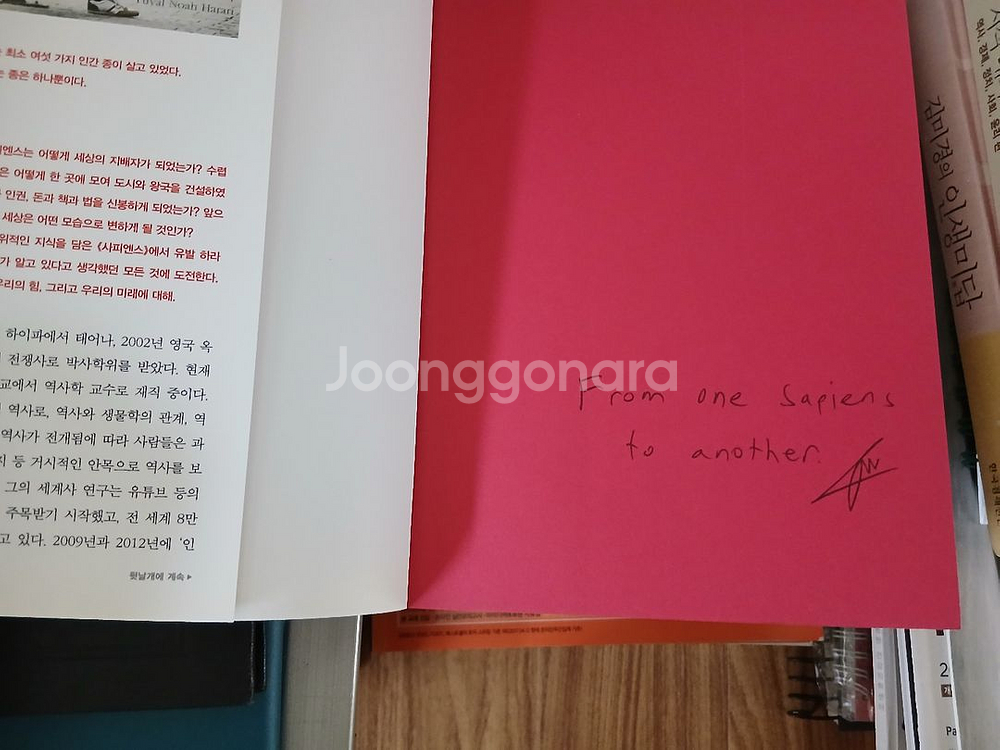 Yuval Noah Harari
최소 여섯 가지 인간 종이 살고 있었다.
종은 하나뿐이다.
어떻게 세상의 지배자가 되었는가? 수렵
은 어떻게 한 곳에 모여 도시와 왕국을 건설하였
인권, 돈과 책과 법을 신봉하게 되었는가? 앞으
세상은 어떤 모습으로 변하게 될 것인가?
위적인 지식을 담은 《사피엔스》에서 유발 하라
가 알고 있다고 생각했던 모든 것에 도전한다.
우리의 힘, 그리고 우리의 미래에 대해.
하이파에서 태어나, 2002년 영국 옥
전쟁사로 박사학위를 받았다. 현재
교에서 역사학 교수로 재직 중이다.
역사로, 역사와 생물학의 관계, 역
역사가 전개됨에 따라 사람들은 과
지 등 거시적인 안목으로 역사를 보
그의 세계사 연구는 유튜브 등의
주목받기 시작했고, 전 세계 8만
고 있다. 2009년과 2012년에 '인
뒷날개에 계속▶
Joonggonara
From one Sapiens
to another.
김미경의 인생미답
역사, 경제, 정치, 사회, 윤리 편
2
Pa